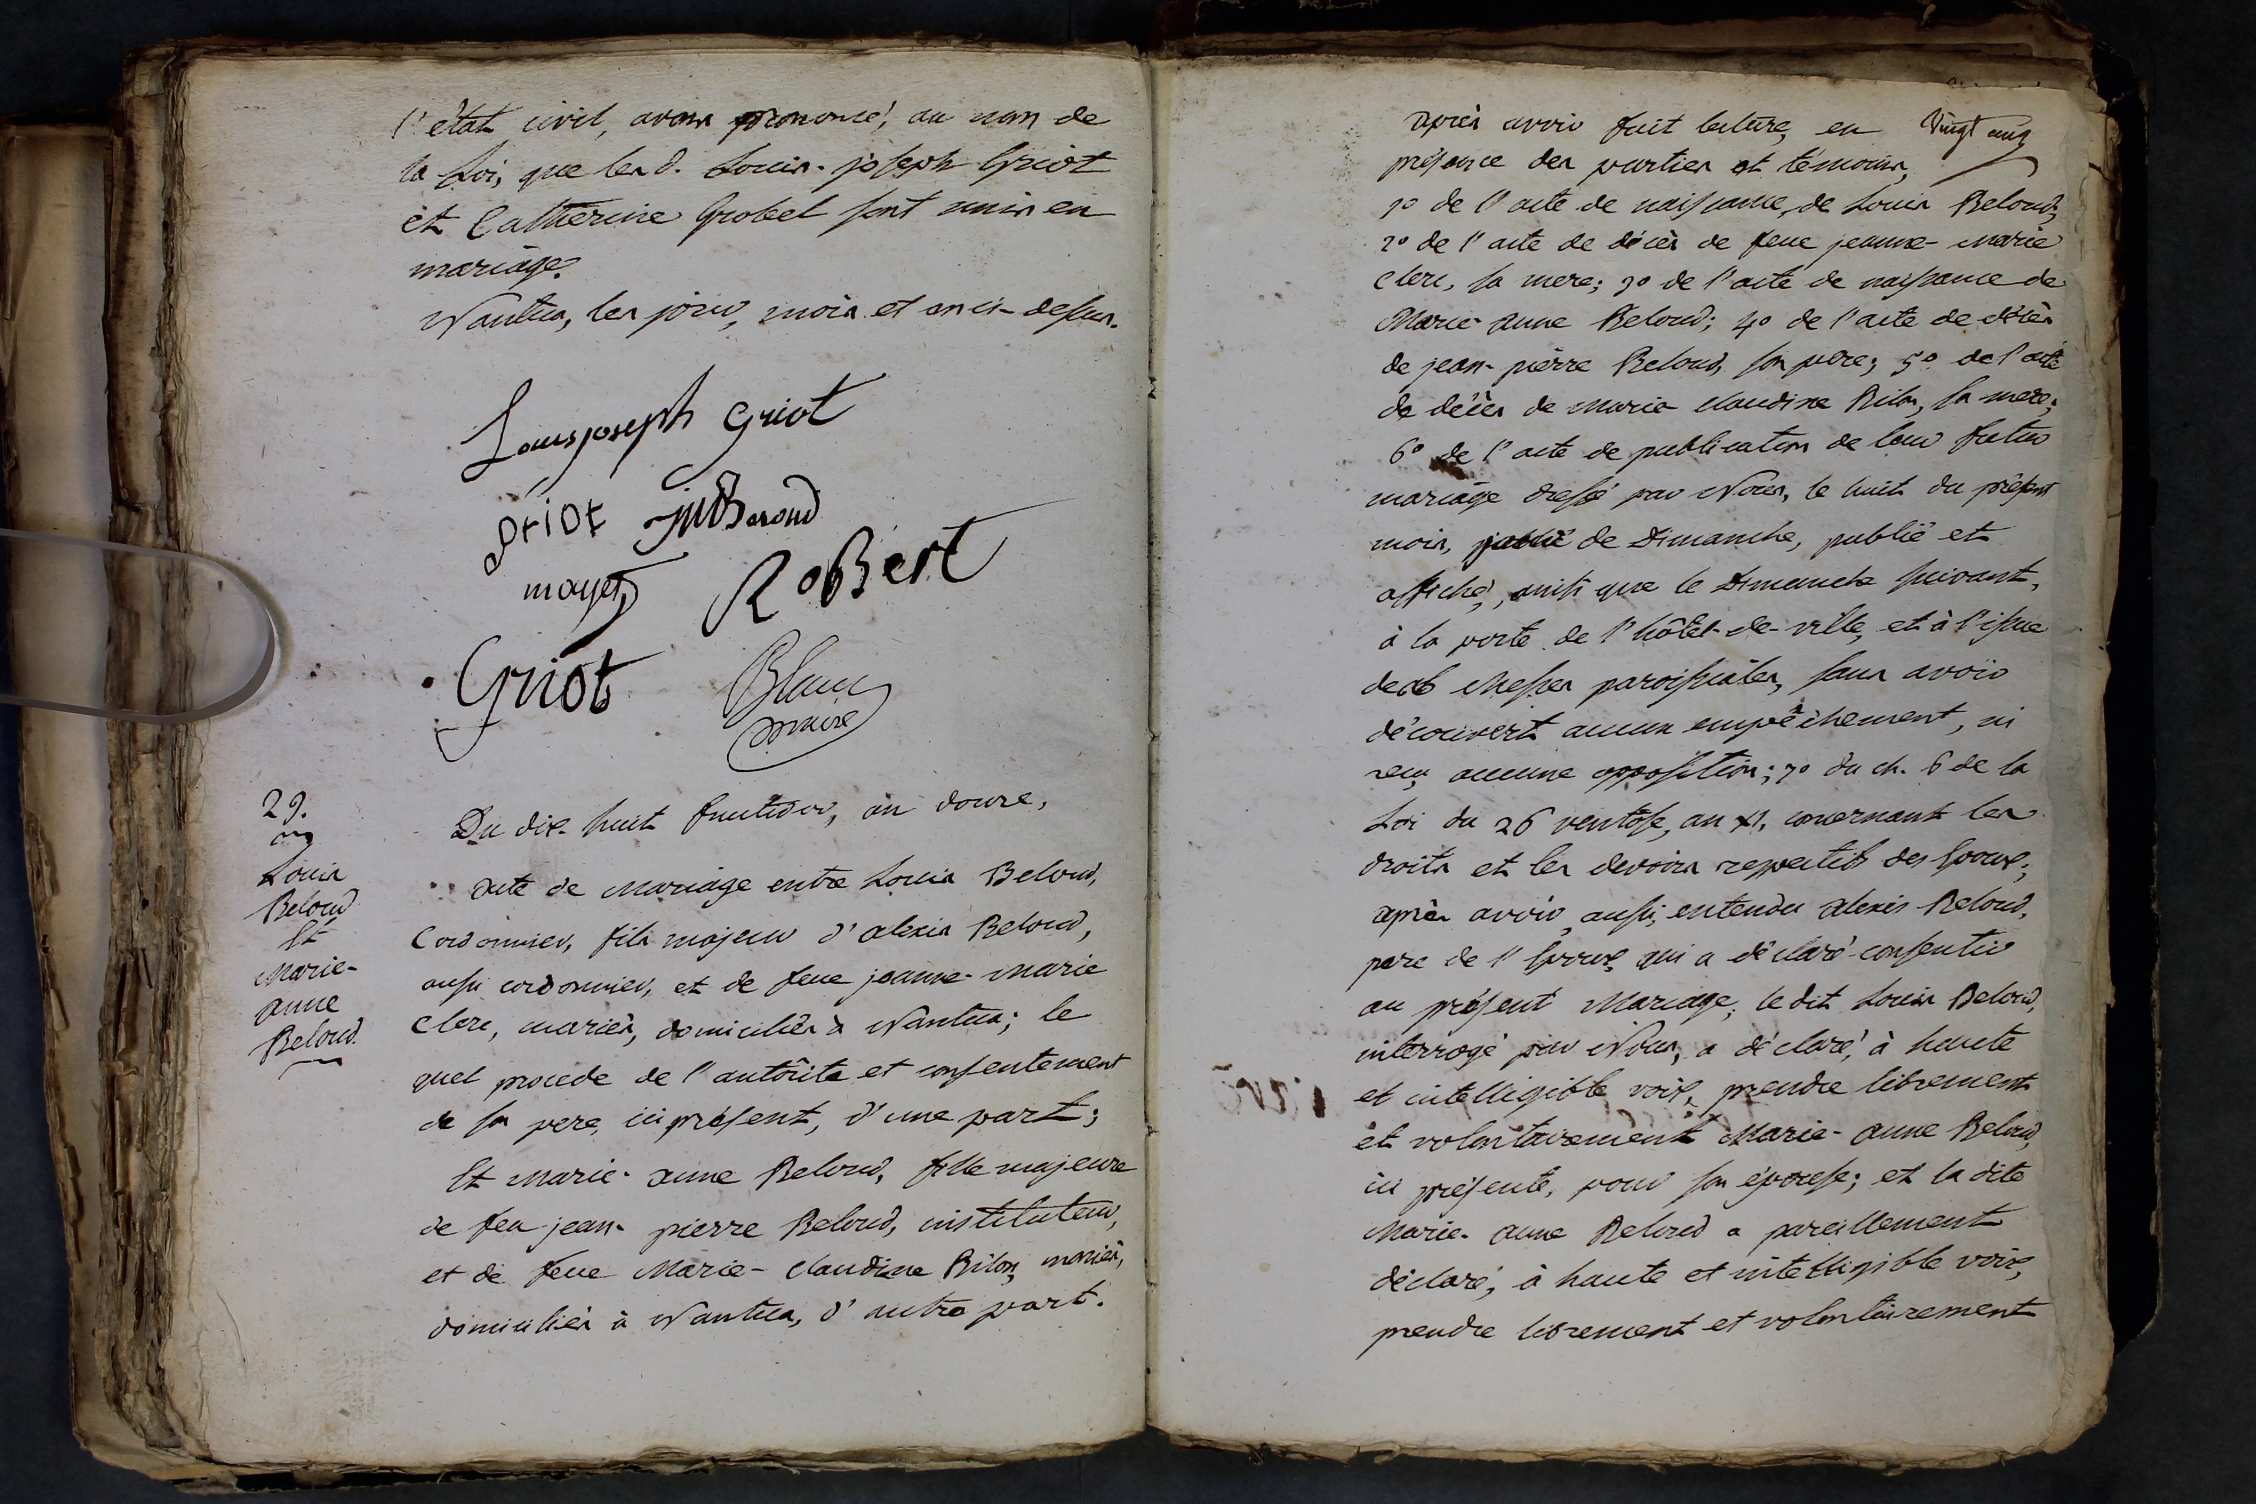 l'état civil, avons prononcé, au nom de
la Loi, que les d. Louis-joseph Griot
et Catherine Grobel sont unis en
mariage.
Nantua, les jour, mois et an ci-dessus.
Louis joseph Griot
griot JMBeroud
mayet RoBert
Griot Blanc
maire
29.
Louis
Beloud
Et
Marie-
anne
Beloud.
Du dix-huit fructidor, an douze,
acte de Mariage entre Louis Beloud,
Cordonnier, fils majeur d'alexis Beloud,
aussi cordonnier, et de feue jeanne-Marie
Clerc, mariés, domiciliés à Nantua; le
quel procede de l'autôrite et consentement
de son pere, ici présent, d'une part;
Et Marie-anne Beloud, fille majeure
de feu jean-pierre Beloud, instituteur,
et de feue Marie-Claudine Bilon, mariés,
domiciliés à Nantua, d'autre part.
Vingt cinq
après avoir fait lecture, en
présence des parties et témoins,
1º de l'acte de naissance de Louis Beloud;
2º de l'acte de décès de feue jeanne-Marie
Clerc, sa mere; 3º de l'acte de naissance de
Marie anne Beloud; 4º de l'acte de décès
de jean-pièrre Beloud, son père; 5º de l'acte
de décès de Marie Claudine Bilon, sa mere;
6º de l'acte de publication de leur futur
mariage dressé par Nous, le huit du présent
mois, de Dimanche, publié et
affiché, ainsi que le Dimanche suivant,
à la porte de l'hôtel-de-ville, et à l'issue
des Messes paroissiales, sans avoir
découvert aucun empêchement, ni
reçu aucune opposition; 7º du ch. 6 de la
Loi du 26 ventose, an XI, concernant les
droits et les devoirs respectifs des Epoux;
après avoir, aussi, entendu alexis Beloud,
pere de l'Epoux, qui a déclaré consentir
au présent Mariage; le dit Louis Beloud,
interrogé par Nous, a déclaré, à haute
et intelligible voix, prendre librement
et volontairement Marie-anne Beloud,
ici présente, pour son épouse; et la dite
Marie-anne Beloud a pareillement
déclaré, à haute et intelligible voix,
prendre librement et volontairement